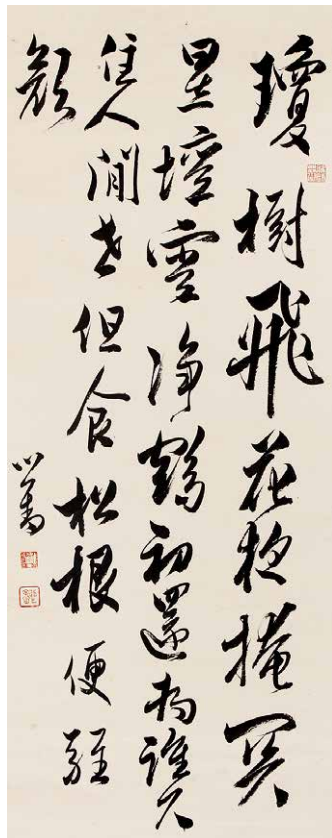 瓊樹飛花夜掩關
星壇雲淨鶴初還為誰久
住人間世但食松根便駐
顏
心畬